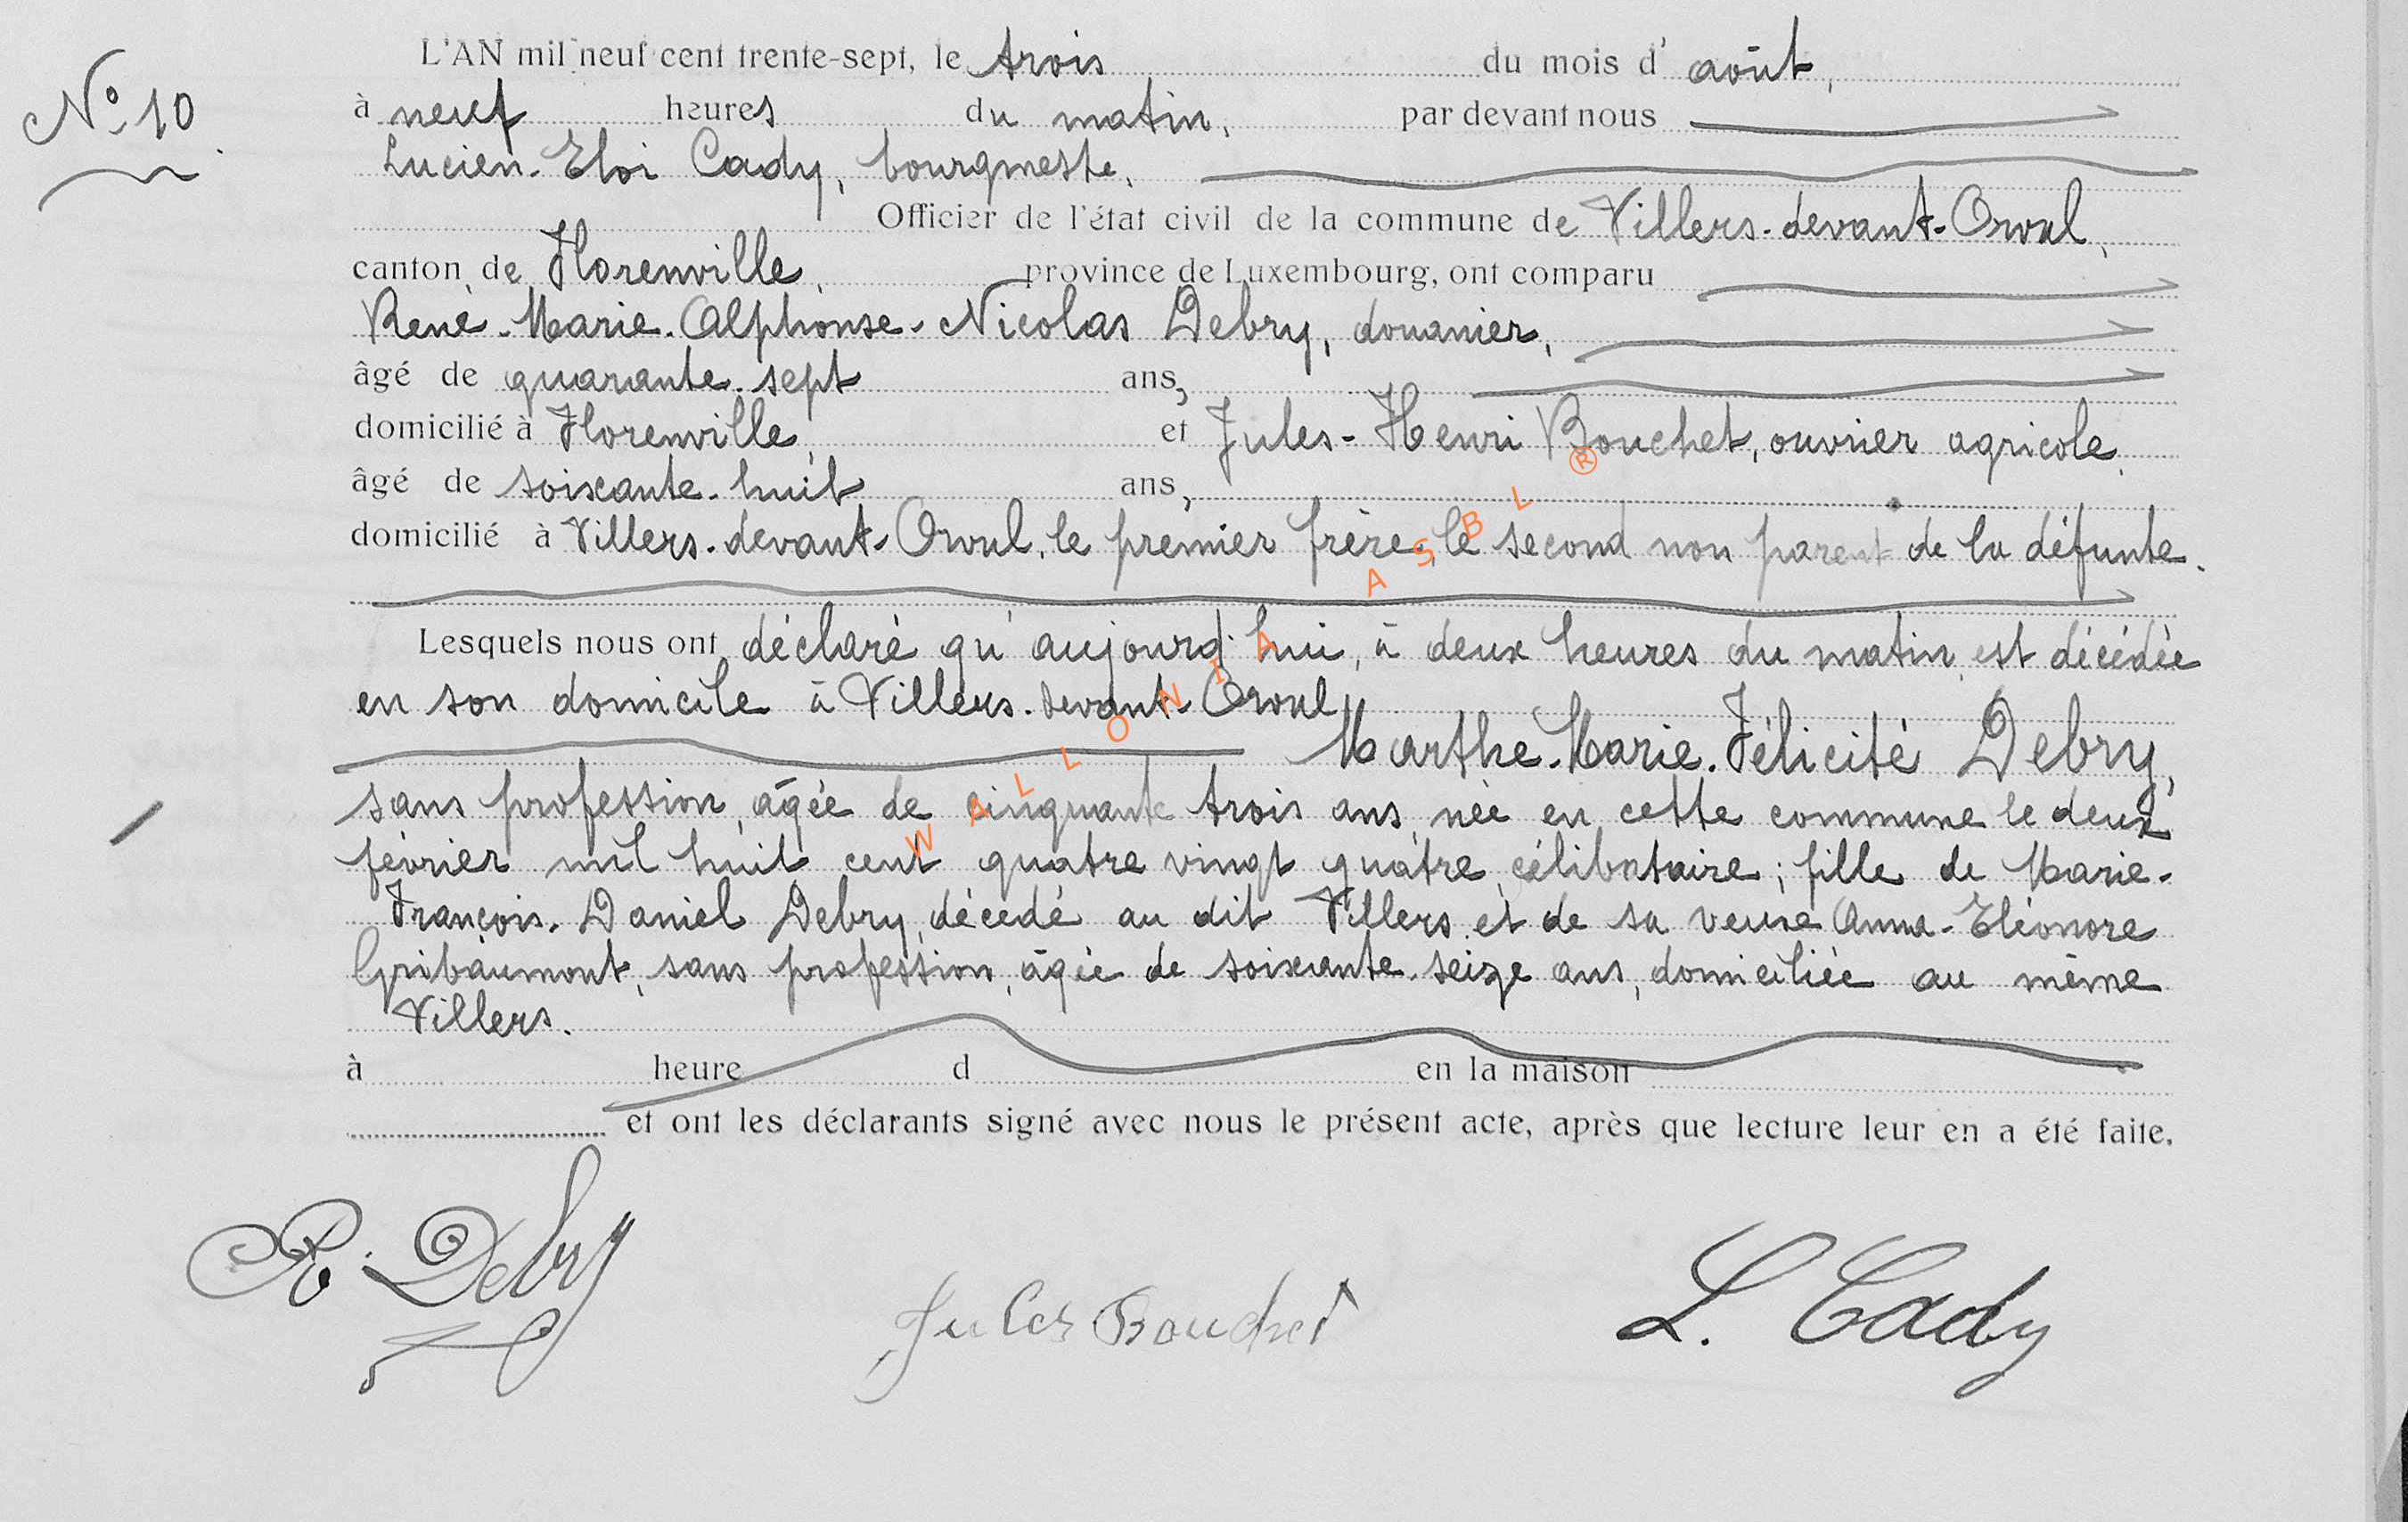 L'AN mil neuf cent trente-sept, le trois du mois d'août,
N° 10
à neuf heures du matin, par devant nous
Lucien-Eloi Cady, bourgmestre,
Officier de l'état civil de la commune de Villers-devant-Orval,
canton de Florenville, province de Luxembourg, ont comparu
René-Marie-Alphonse-Nicolas Debry, douanier,
âgé de quarante-sept ans,
domicilié à Florenville, et Jules-Henri Bouchet, ouvrier agricole,
âgé de soixante-huit ans,
domicilié à Villers-devant-Orval, le premier frère, le second non parent de la défunte.
Lesquels nous ont déclaré qu'aujourd'hui, à deux heures du matin, est décédée
en son domicile à Villers-devant-Orval,
Marthe-Marie-Félicité Debry,
sans profession, âgée de cinquante trois ans, née en cette commune le deux
février mil huit cent quatre vingt quatre, célibataire; fille de Marie-
François-Daniel Debry, décédé au dit Villers et de sa veuve Anna-Eléonore
Gribaumont, sans profession, âgée de soixante-seize ans, domiciliée au même
Villers.
à heure d en la maison
et ont les déclarants signé avec nous le présent acte, après que lecture leur en a été faite.
R. Debry Jules Bouchet L. Cady
WALLONIA ASBL ®